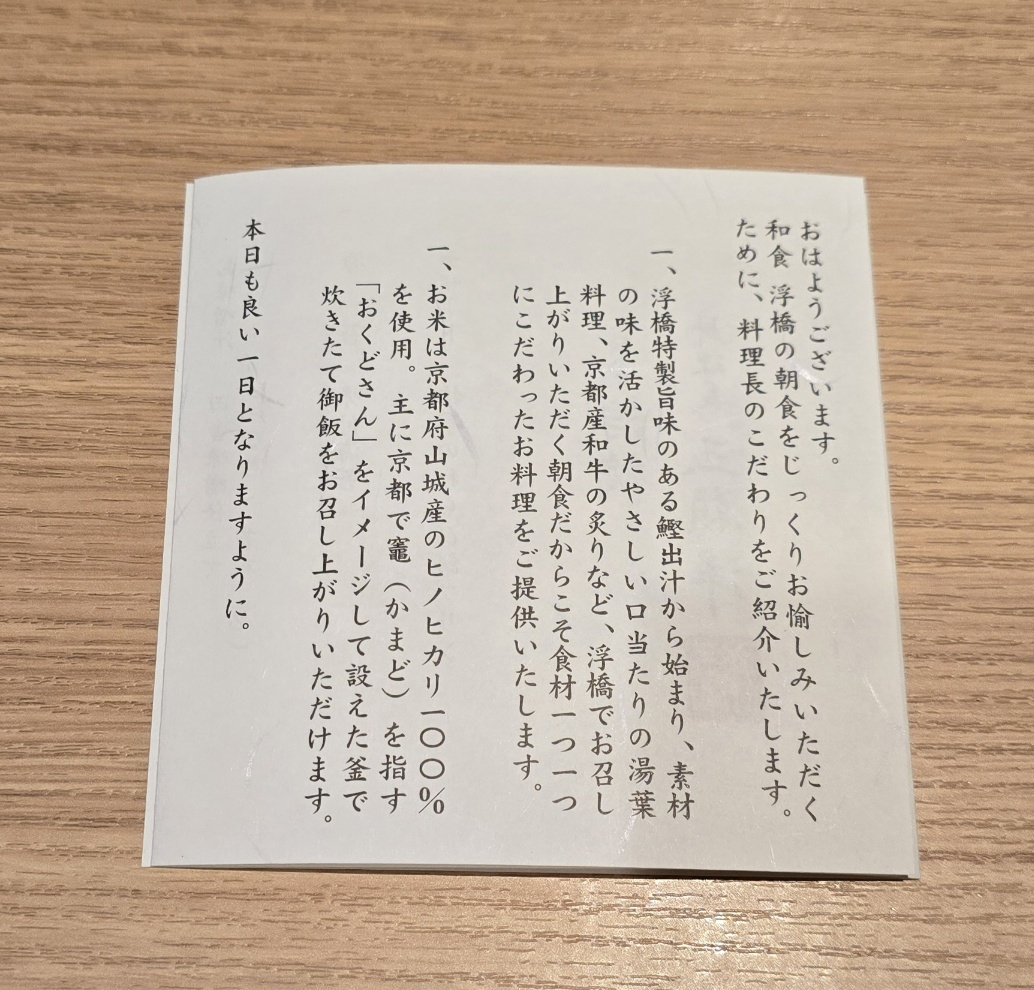 おはようございます。
和食 浮橋の朝食をじっくりお愉しみいただく
ために、料理長のこだわりをご紹介いたします。
一、浮橋特製旨味のある鰹出汁から始まり、素材
の味を活かしたやさしい口当たりの湯葉
料理、京都産和牛の炙りなど、浮橋でお召し
上がりいただく朝食だからこそ食材一つ一つ
にこだわったお料理をご提供いたします。
一、お米は京都府山城産のヒノヒカリ一〇〇%
を使用。主に京都で竈（かまど）を指す
「おくどさん」をイメージして設えた釜で
炊きたて御飯をお召し上がりいただけます。
本日も良い一日となりますように。